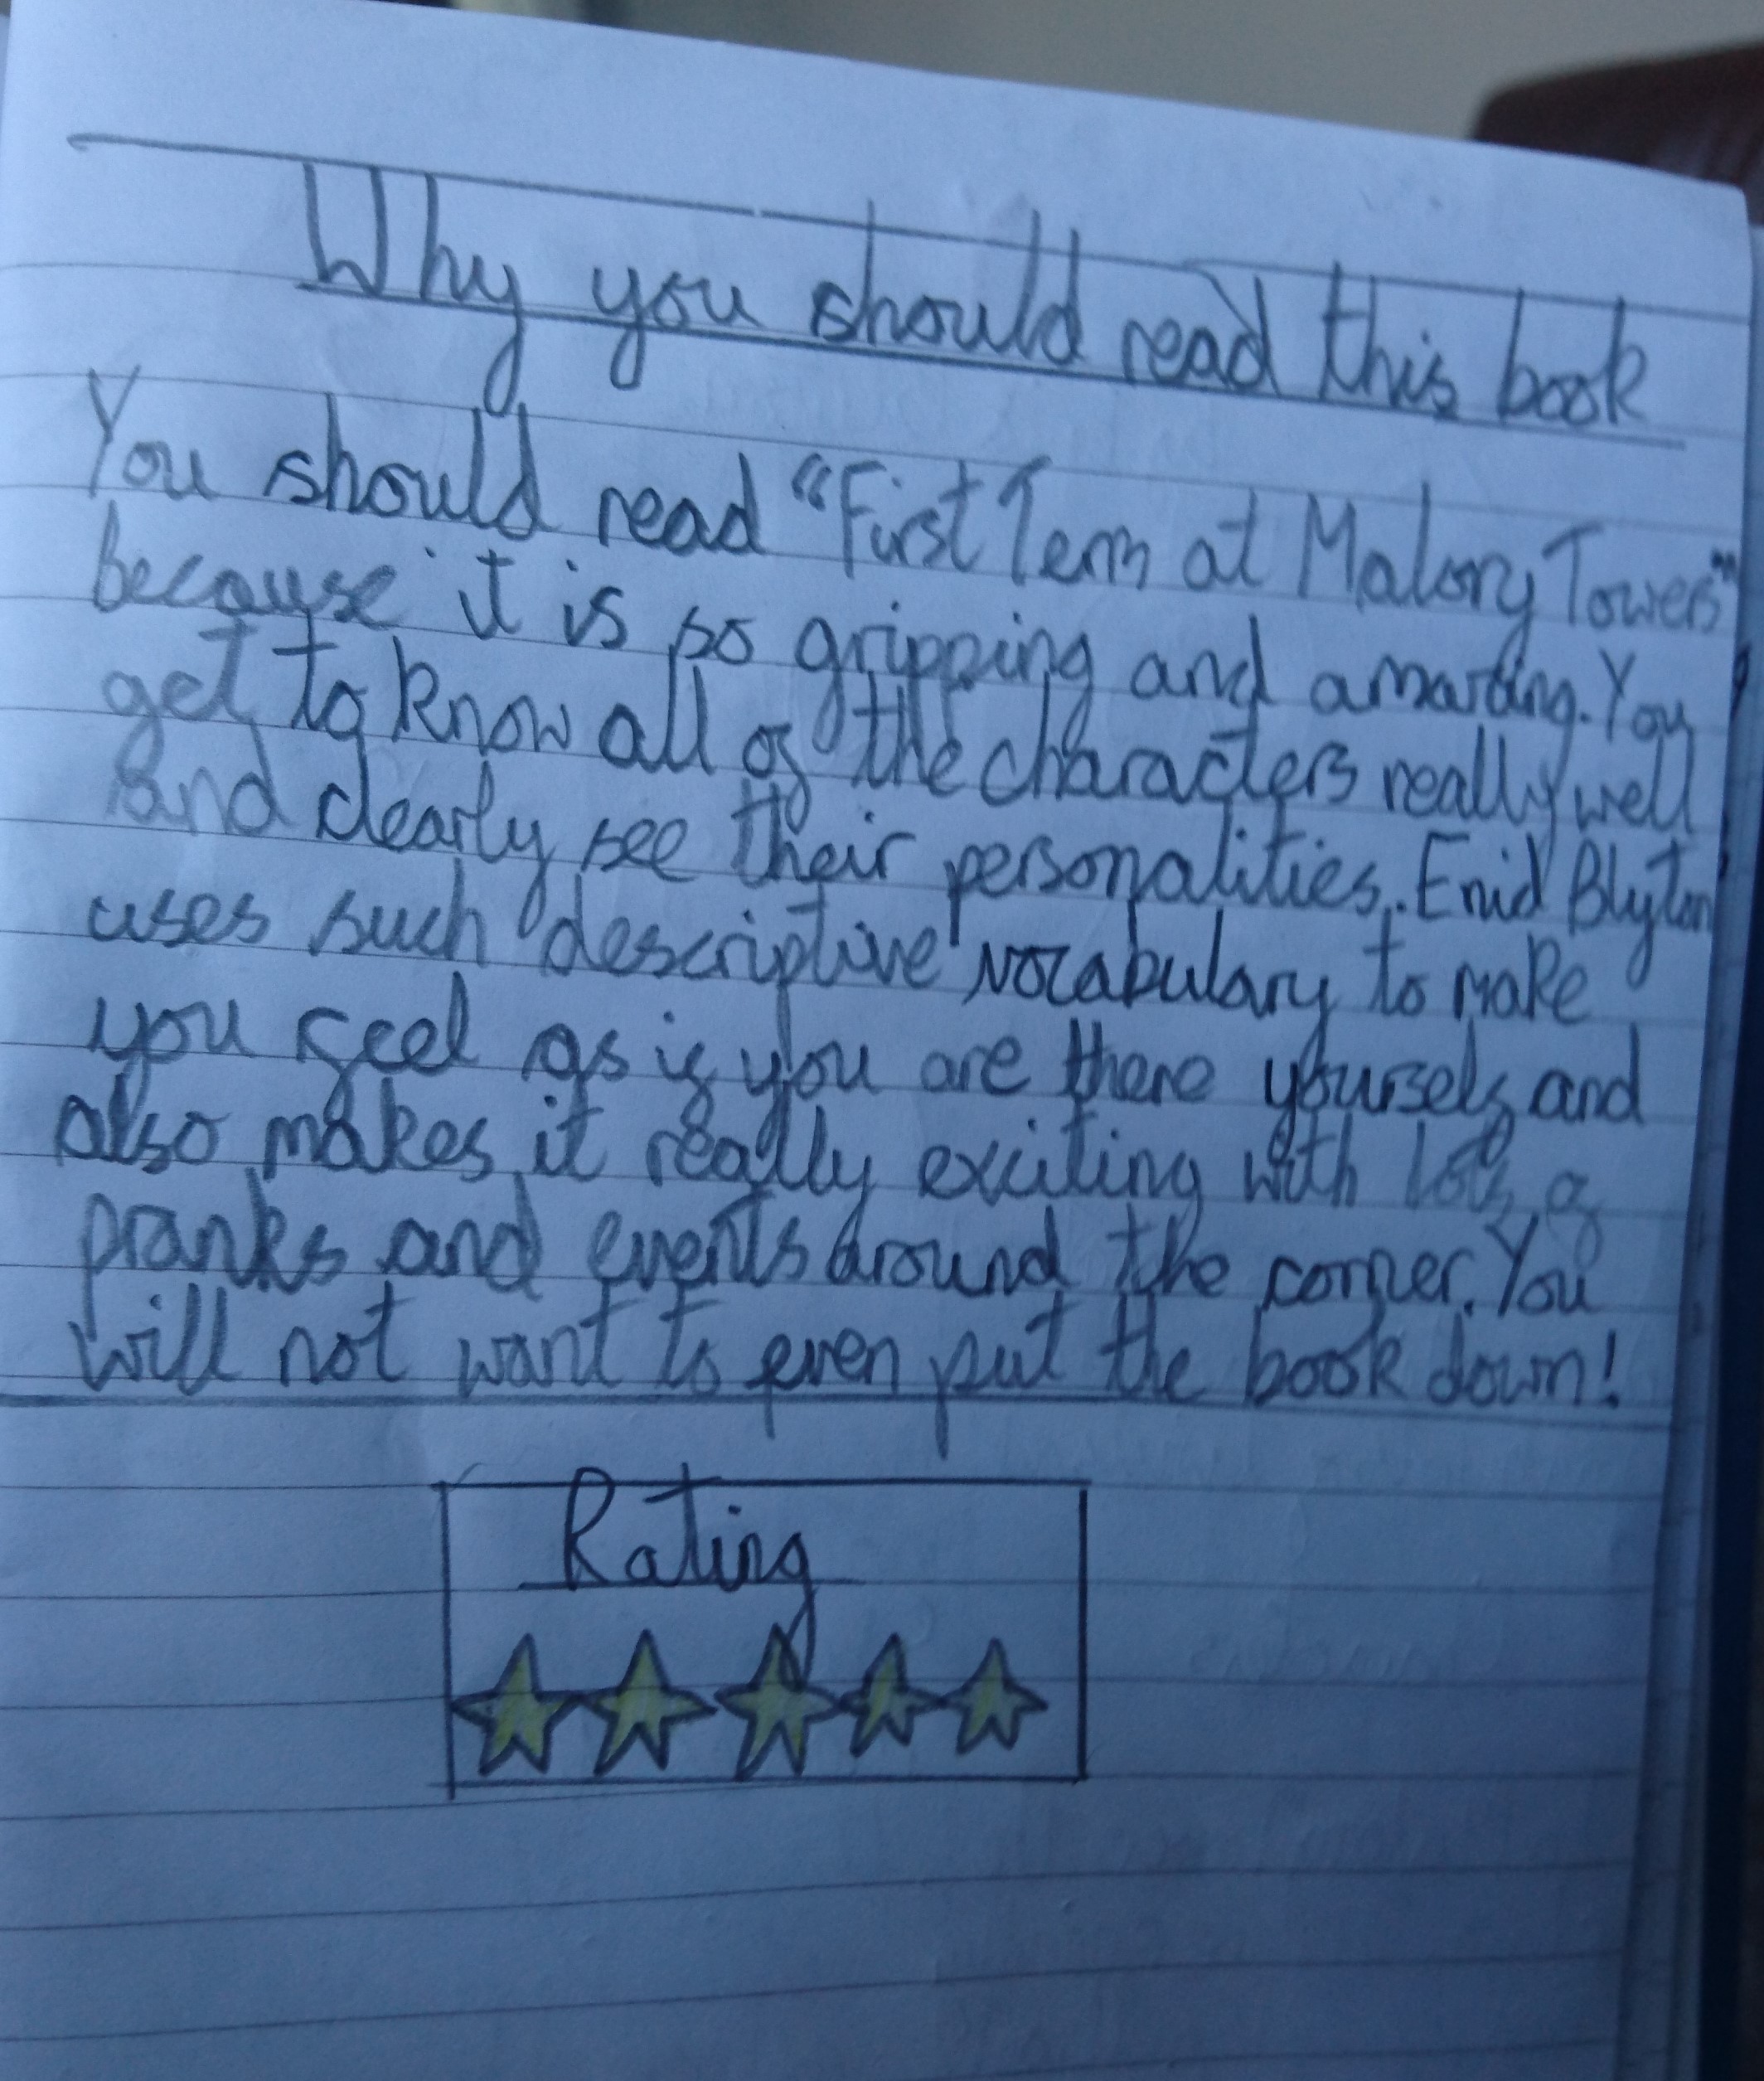 Why you should read this book
You should read "First Term at Malory Towers"
because it is so gripping and amazing. You
get to know all of the characters really well
and clearly see their personalities. Enid Blyton
uses such descriptive vocabulary to make
you feel as if you are there yourself and
also makes it really exciting with lots of
pranks and events around the corner. You
will not want to even put the book down!
Rating